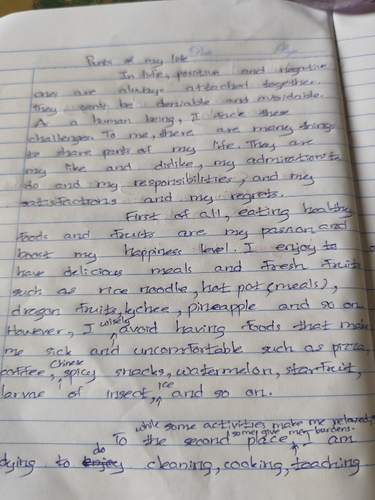 Parts of my life
In life, positive and negative
ones are always attached together.
They can't be deniable and avoidable.
As a human being, I face these
challenges. To me, there are many things
to share parts of my life. They are
my like and dislike, my admiration to
do and my responsibilities, and my
satisfactions and my regrets.
First of all, eating healthy
foods and fruits are my passion and
boost my happiness level. I enjoy to
have delicious meals and fresh fruits
such as rice noodle, hot pot (meals),
dragon fruits, lychee, pineapple and so on.
However, I wisely avoid having foods that make
me sick and uncomfortable such as pizza,
coffee, Chinese spicy snacks, watermelon, starfruit,
larvae of insect, ice and so on.
while some activities make me relaxed,
some give me burdens.
To the second place, I am
dying to do cleaning, cooking, teaching